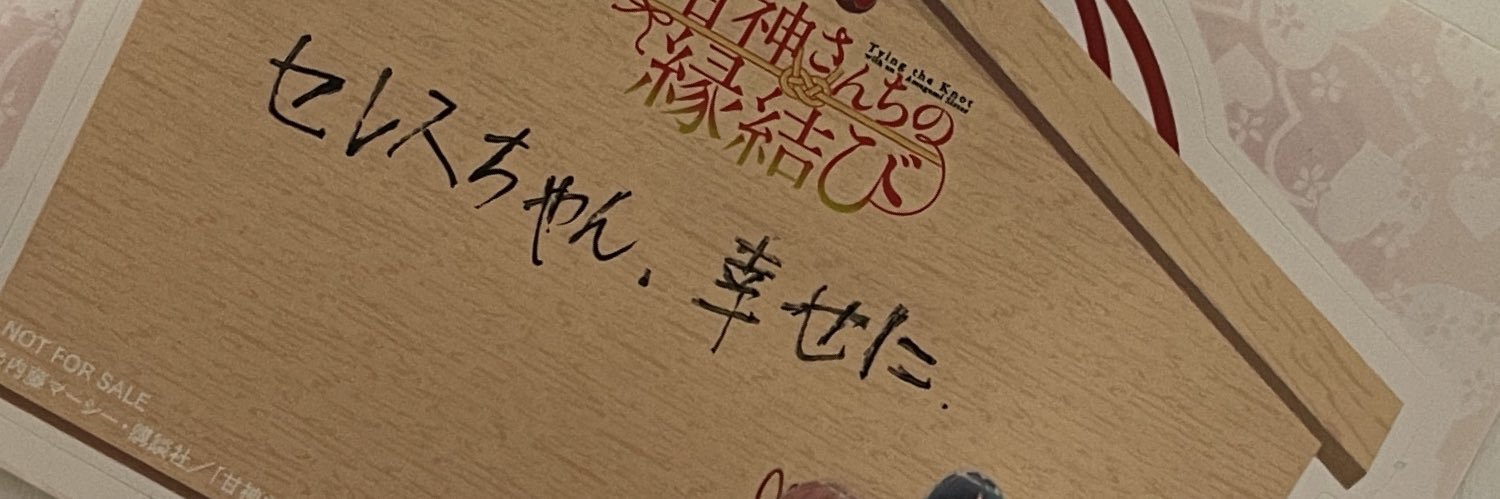 甘神さんちの
縁結び
Tying the Knot
with an Amagami Sister
セレスちゃん、幸せに.
NOT FOR SALE
内藤マーシー・講談社／「甘神